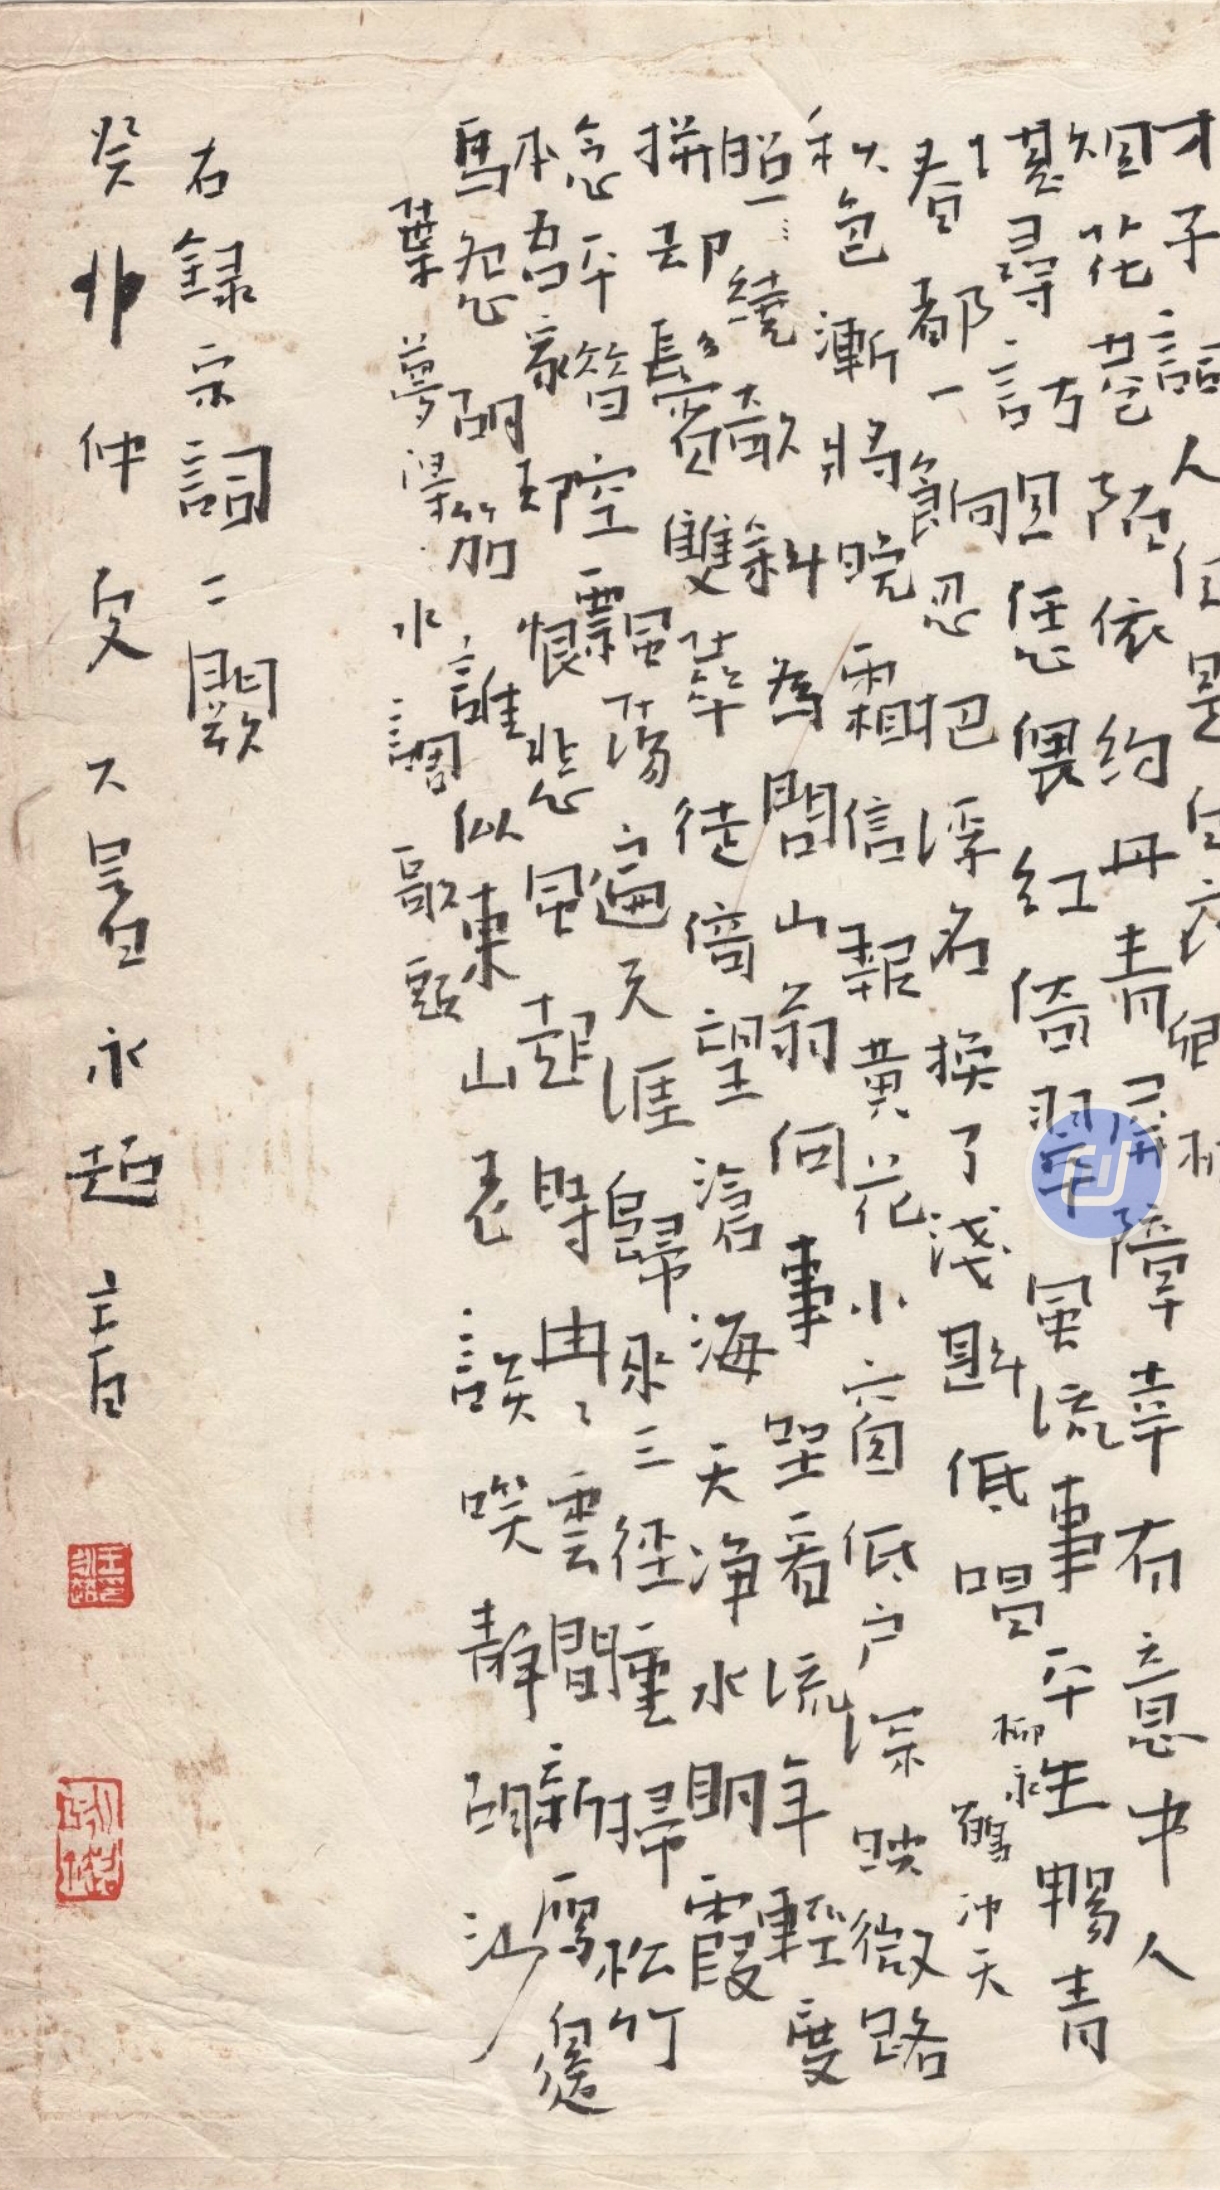 才子詞人自是白衣卿相
煙花巷陌依約丹青屏障幸有意中人
堪尋訪且恁偎紅倚翠風流事平生暢青
春都一餉忍把浮名換了淺斟低唱
柳永鶴冲天
秋色漸將晚霜信報黃花小窗低户深映微路
繞欹斜為問山翁何事坐看流年輕度
拚却鬢雙華徙倚望滄海天净水明霞
念平昔空飄蕩遍天涯歸來三徑重掃松竹
本吾家却恨悲風時起冉冉雲間新雁邊
馬怨胡笳誰似東山老談笑静胡沙
葉夢得水調歌頭
右録宋詞二闋
癸卯仲夏 永超書